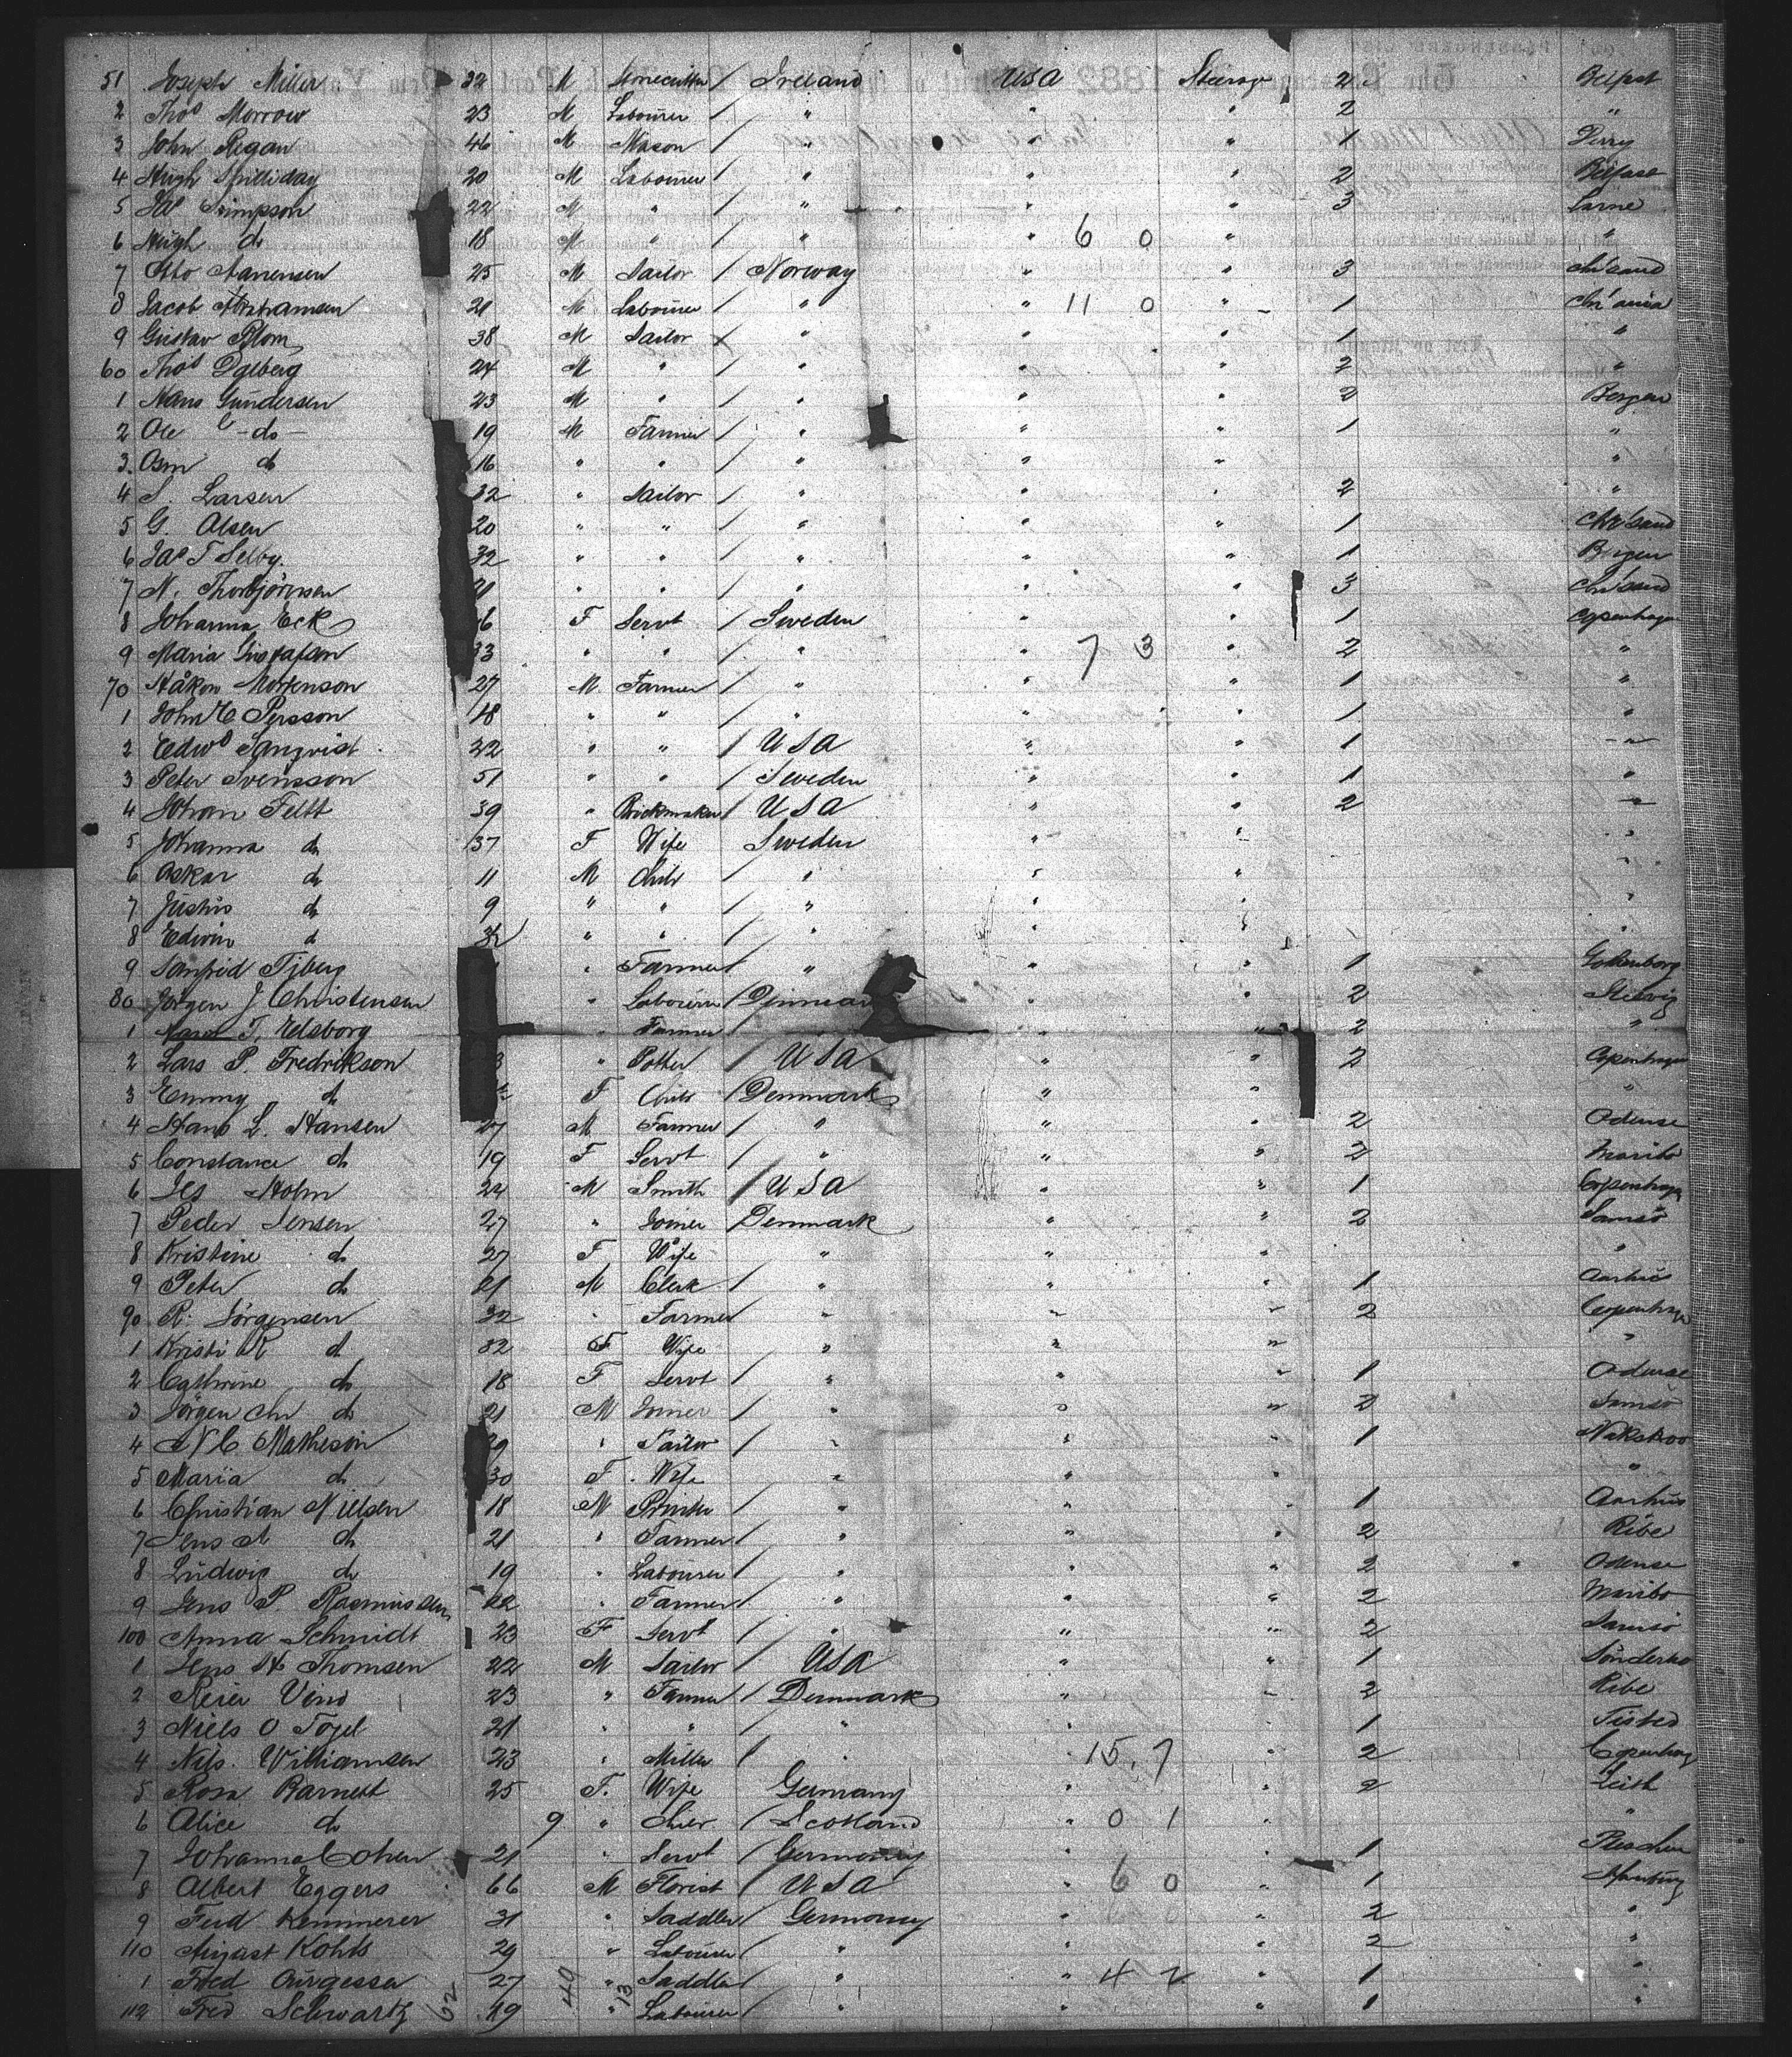 51 Joseph Miller 32 M Ireland USA Steerage 2 Belfast
2 Thos Morrow 23 M Labourer / " " " 2 "
3 John Regan 46 M Mason / " " " 1 Derry
4 Hugh 20 M Labourer / " " " 2 Belfast
5 Simpson 22 M " / " " " 3 Larne
6 Hugh do 18 M " / " " 6 0 " "
7 25 M Sailor / Norway " " 3
8 Jacob Abrahamsen 21 M Labourer / " " 11 0 " 1
9 Gustav Blom 38 M Sailor " " " 1 "
60 Thos Dalberg 24 M " / " " " 2 "
1 Hans Gundersen 23 M " / " " " 2 Bergen
2 Ole - do - 19 M Farmer / " " " 1 "
3 Osm do 16 " " / " " " "
4 S. Larsen 32 " Sailor / " " " 2 "
5 G. Olsen 20 " " / " " " 1 Chr'sand
6 Jas T Selby. 32 " " / " " " 1 Bergen
7 N. Thorbjörnsen " " / " " " 3 Chr'sand
8 Johanna Eck 6 F Servt / Sweden " " 1 Copenhagen
9 Maria 33 " " / " " 7 3 " 2 "
70 Håkon Mortenson 27 M Farmer / " " " 1 "
1 John E Persson 18 " " / " " " 1 "
2 Edwd 22 " " / USA " " 1 "
3 Peter Svensson 51 " " / Sweden " " 1 "
4 Johan Feltt 39 " Brickmaker / USA " " 2 "
5 Johanna do 37 F Wife Sweden " " "
6 Oskar do 11 M Child " " " "
7 Justus do 9 " " / " " " "
8 Edwin do " " / " " " "
9 Sanfrid Tiberg " Farmer / " " " 1 Gothenborg
80 Jorgen J Christensen " Labourer / Denmark " " 2
1 T. Edsborg " Farmer / " " " 2 "
2 Lars P. Fredrikson 3 " Potter USA " " 2 Copenhagen
3 Emmy do F Child / Denmark " " "
4 Hans L. Hansen 27 M Farmer / " " " 2 Odense
5 Constance do 19 F Servt / " " " 2 Maribo
6 Holm 24 M Smith / USA " " 1 Copenhagen
7 Peder Jensen 27 " Joiner / Denmark " " 2 Samsö
8 Kristine do 27 F Wife " " " "
9 Peter do 21 M Clerk / " " " 1 Aarhus
90 R. Jörgensen 32 " Farmer " " " 2 Copenhagen
1 Kristi R do 32 F Wife " " " "
2 Cathrine do 18 F Servt / " " " 1 Odense
3 Jörgen Chr do 21 M Joiner / " " " 2 Samsö
4 N C Matheson 29 " / " " " 1
5 Maria do 30 F Wife " " " "
6 Christian Nielsen 18 M Printer / " " " 1 Aarhus
7 Jens do 21 " Farmer / " " " 2 Ribe
8 Ludwig do 19 " Labourer / " " " 2 Odense
9 Jens P. Rasmussen 22 " Farmer / " " " 2 Maribo
100 Anna Schmidt 23 F Servt / " " " 2 Samsö
1 Jens H Thomsen 22 M Sailor / USA " " 1
2 Vind 23 " Farmer / Denmark " " 2 Ribe
3 Niels O 21 " " / " " " 1 Tisted
4 Nils. Williamsen 23 " Miller / " 15. 7 " 2 Copenhag
5 Rosa Barnett 25 F. Wife Germany " " 2 Leith
6 Alice do 9 " / Scotland " 0 1 " "
7 Johanna Cohen 21 " Servt / Germany " " 1
8 Albert Eggers 66 M Florist / USA " 6 0 " 1 Hamburg
9 Ferd Kemmerer 31 " Saddler / Germany " " 2 "
110 August Kohls 29 " Labourer / " " " 2 "
1 Fred 27 " Saddler / " " 4 2 " 1 "
112 Fred Schwartz 19 " Labourer / " " " 1 "
62 49 13